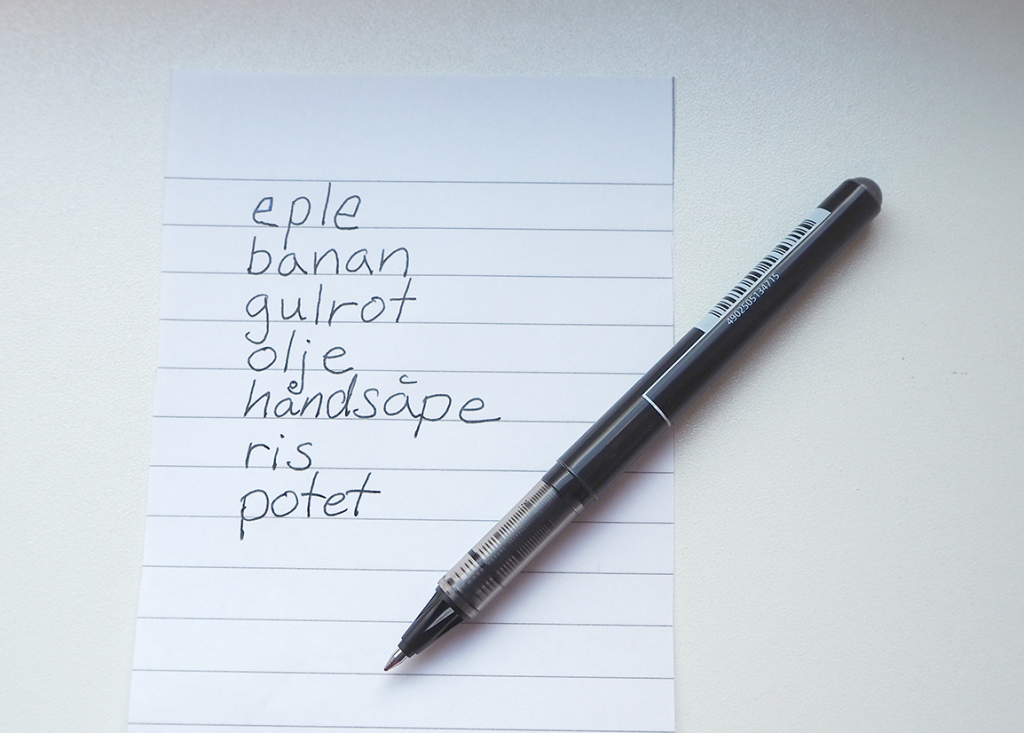 eple
banan
gulrot
olje
håndsåpe
ris
potet
4902505134715